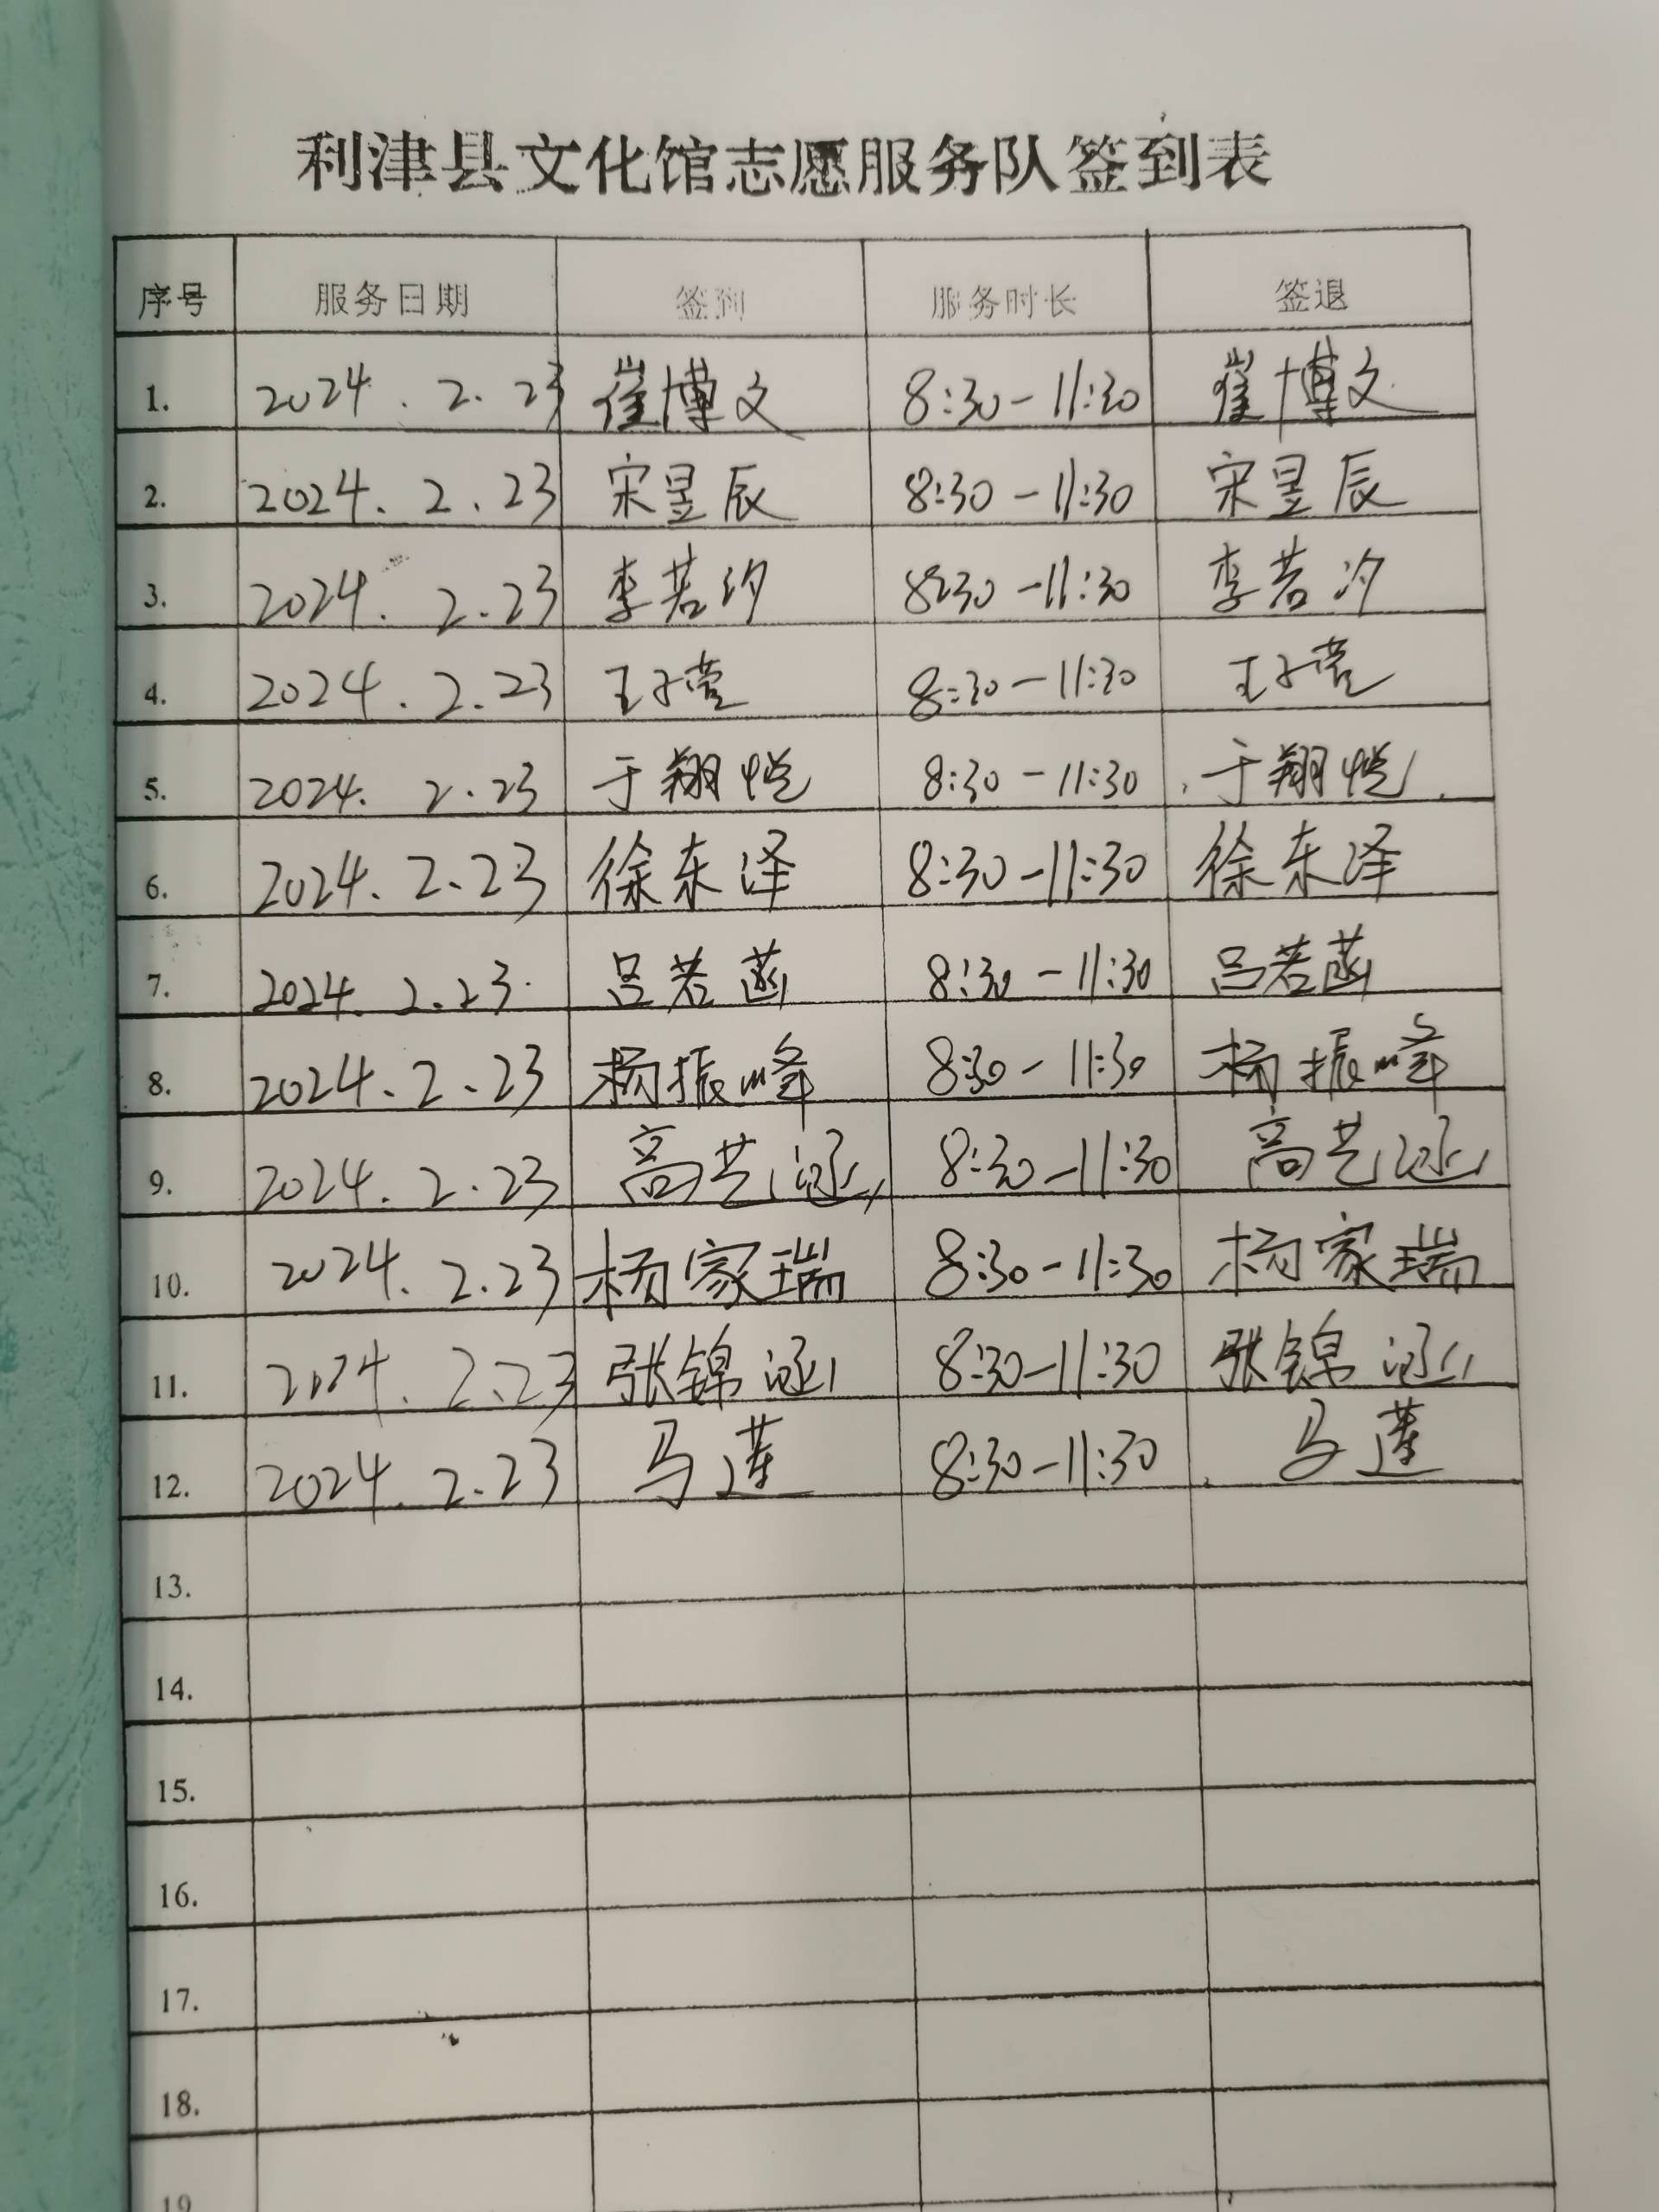 利津县文化馆志愿服务队签到表
序号 服务日期 签到 服务时长 签退
1. 2024.2.23 崔博文 8:30-11:30 崔博文
2. 2024.2.23 宋昱辰 8:30-11:30 宋昱辰
3. 2024.2.23 李若汐 8:30-11:30 李若汐
4. 2024.2.23 王子萱 8:30-11:30 王子萱
5. 2024.2.23 于翔恺 8:30-11:30 于翔恺
6. 2024.2.23 徐东泽 8:30-11:30 徐东泽
7. 2024.2.23 吕若菡 8:30-11:30 吕若菡
8. 2024.2.23 杨振峰 8:30-11:30 杨振峰
9. 2024.2.23 高艺涵 8:30-11:30 高艺涵
10. 2024.2.23 杨家瑞 8:30-11:30 杨家瑞
11. 2024.2.23 张锦涵 8:30-11:30 张锦涵
12. 2024.2.23 马莲 8:30-11:30 马莲
13.
14.
15.
16.
17.
18.
19